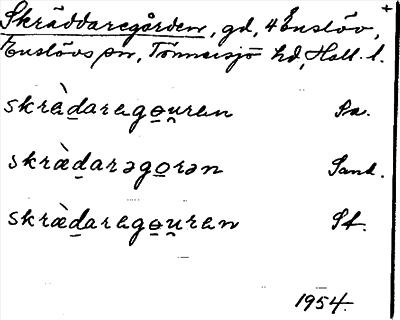 Skräddaregården, gd, 4 Enslöv, +
Enslövs sn, Tönnersjö hd, Hall. l.
skrædaragouran Pa.
skrædarəgorən Sand.
skrædaragouran St.
1954.